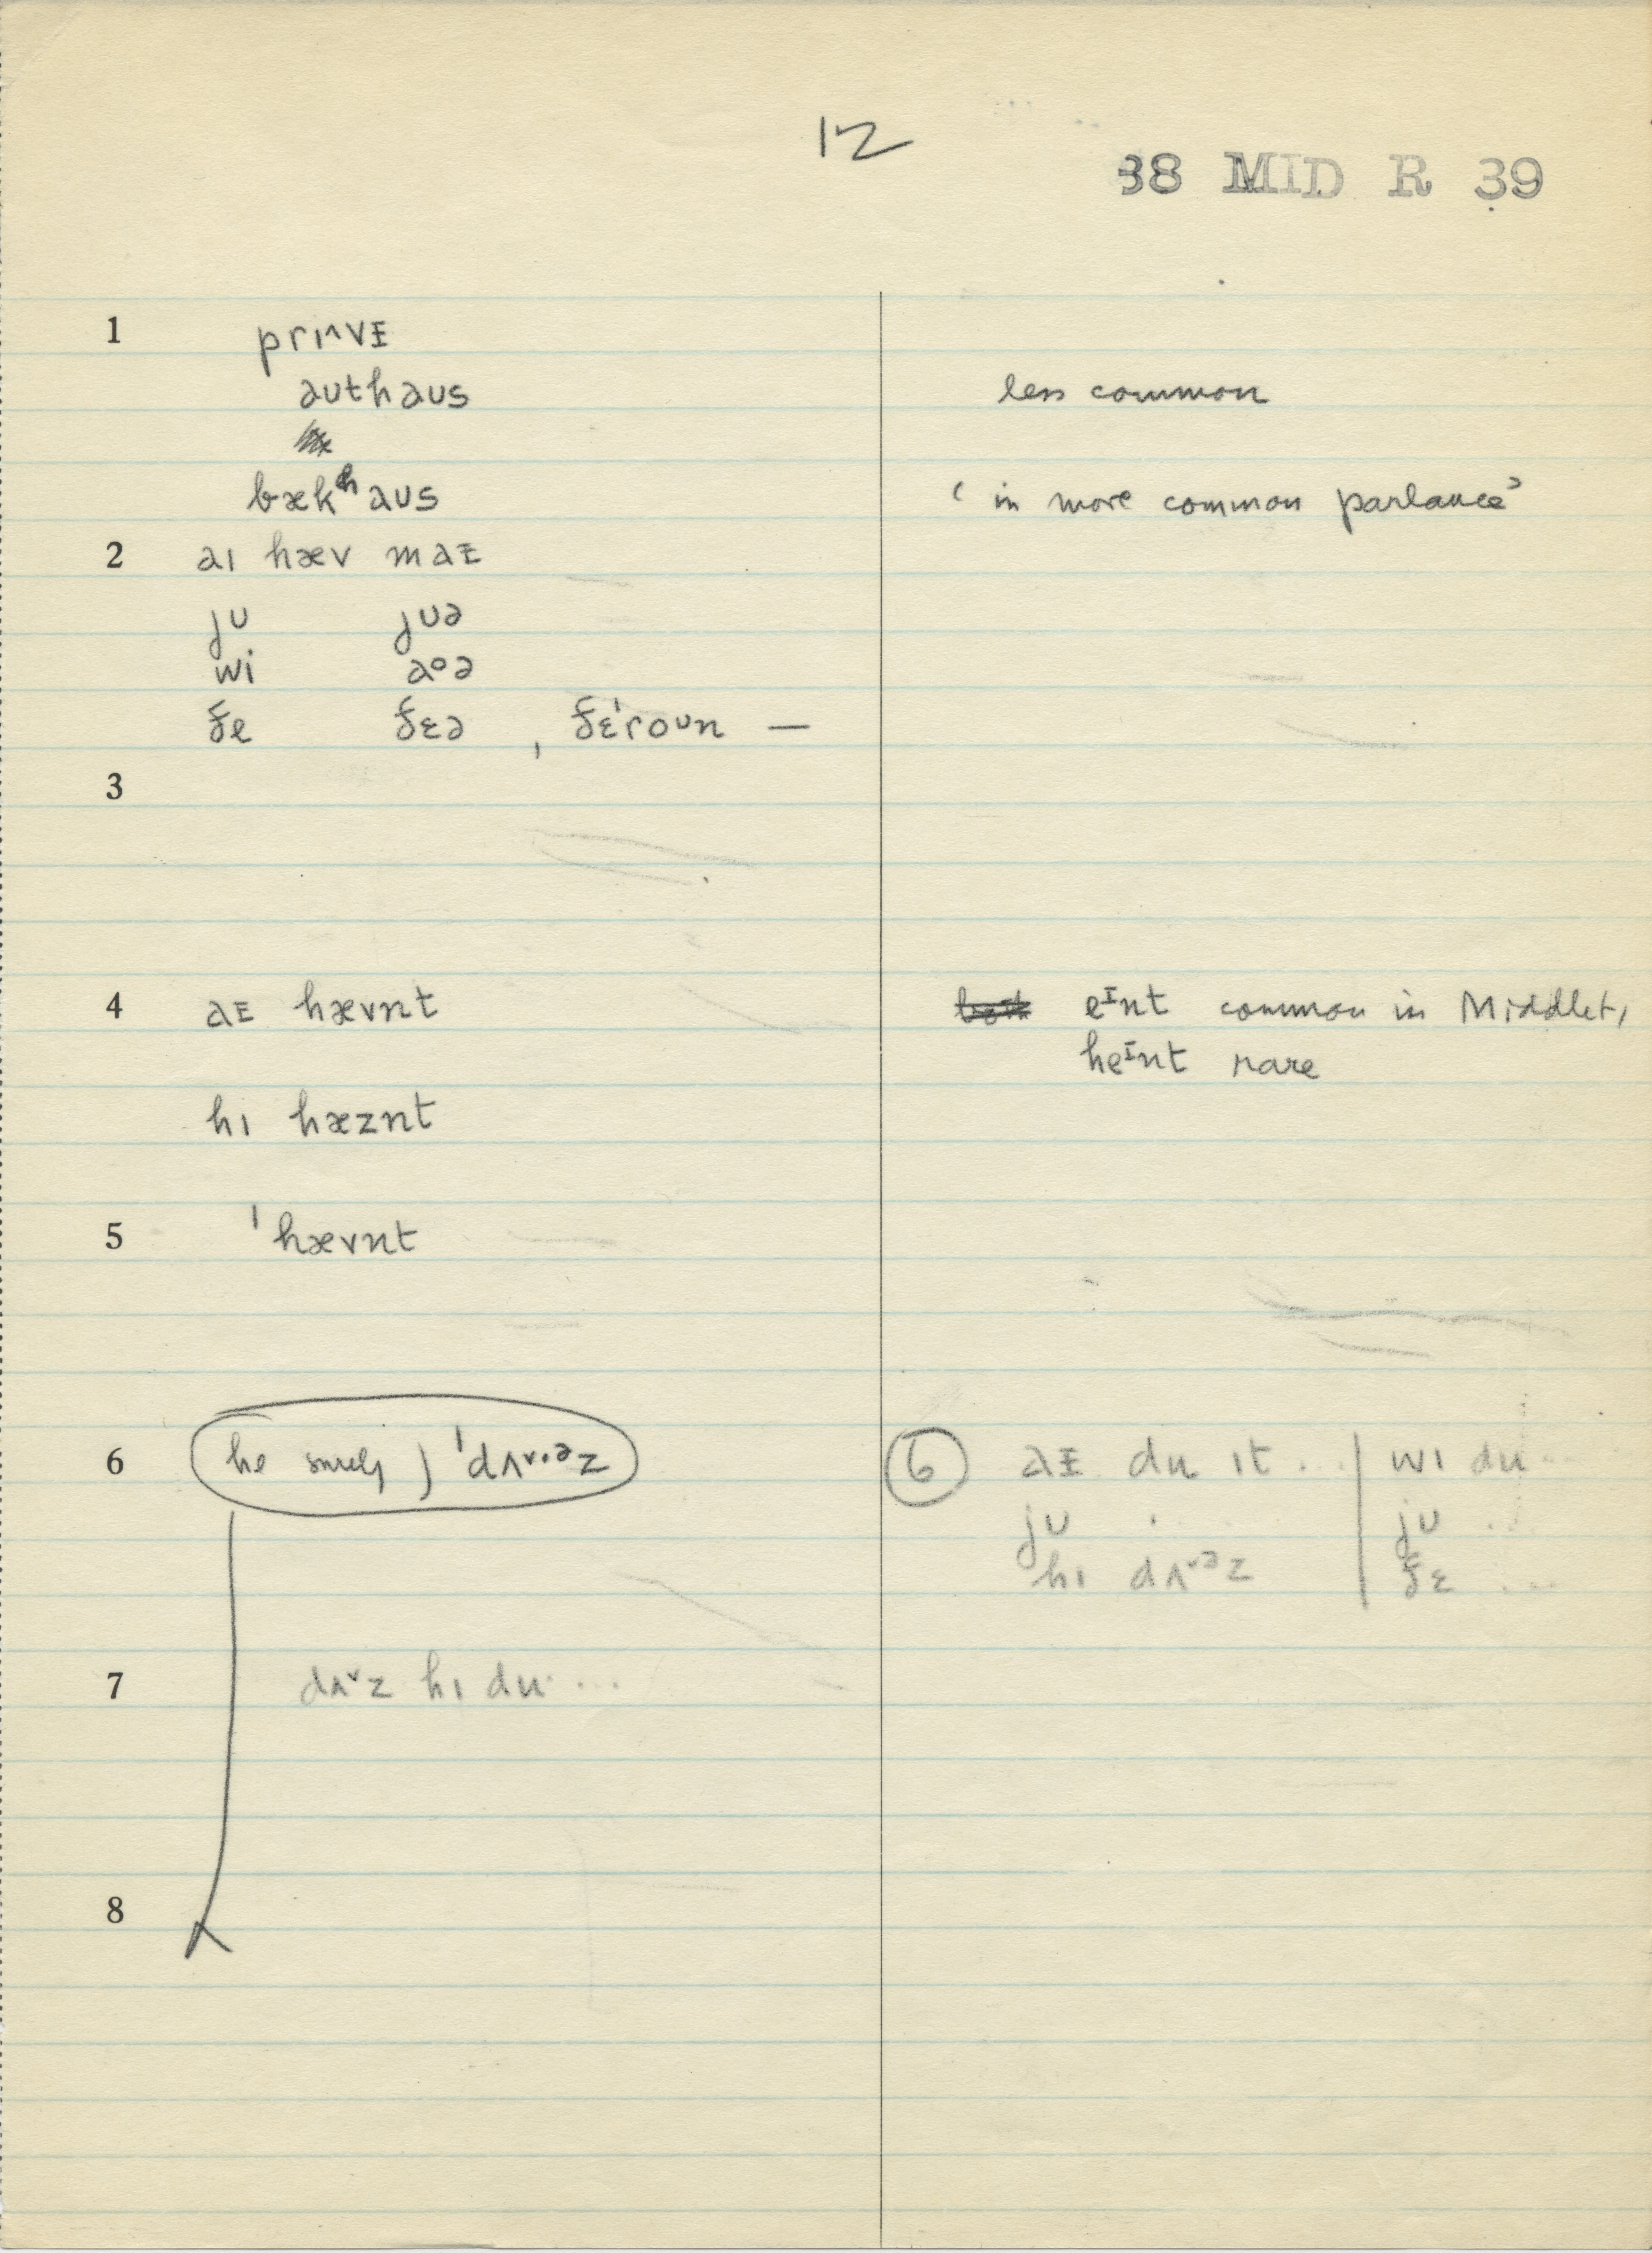 12
38 MID R 39
1 prɪ^vᵻ
aʊthaʊs less common
bækʰaʊs ‘in more common parlance’
2 aɪ hæv maᵻ
jʊ jʊə
wi aoə
ðe ðɛə, ðɛ'roʊn —
3
4 aᵻ hævnt eᵻnt common in Middlet,
heᵻnt rare
hɪ hæznt
5 'hævnt
6 he surely ) 'dʌ˅·əz 6 aᵻ du ɪt ... | wɪ du ...
jʊ . | jʊ ...
hɪ dʌ˅əz | ðɛ ...
7 dʌ˅z hɪ du ...
8